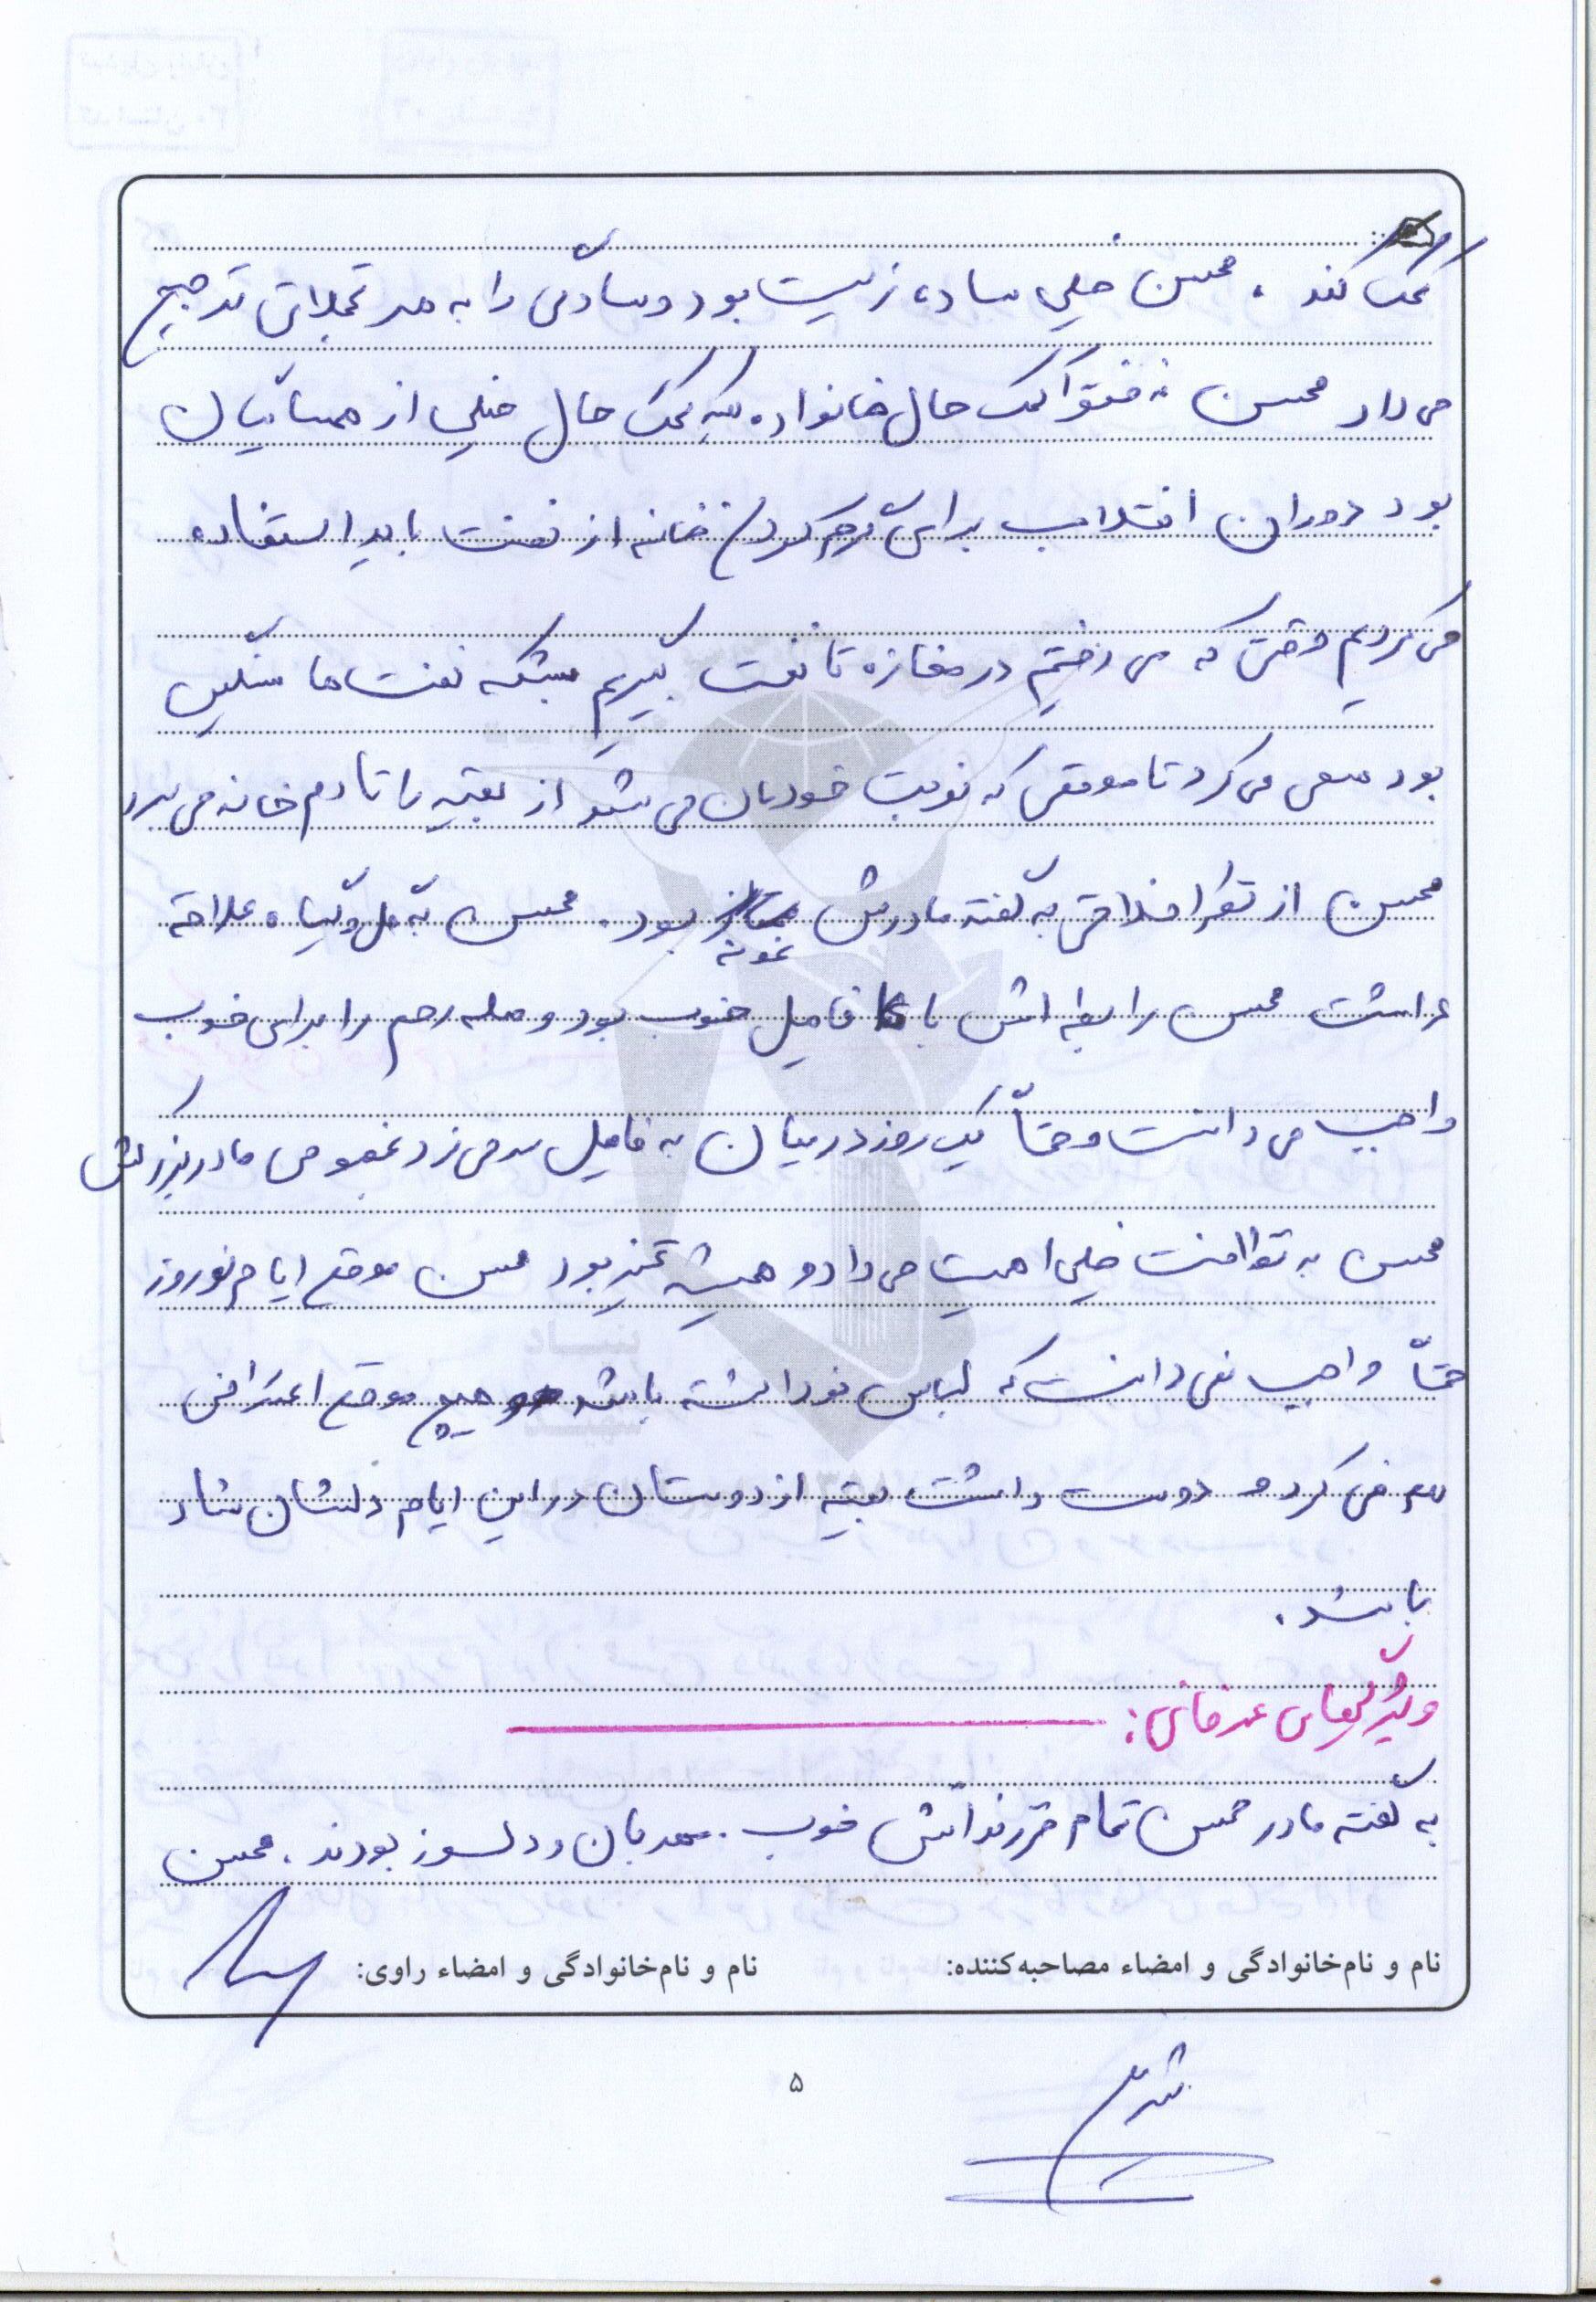 کمک کند. محسن خیلی ساده زیست بود و سادگی را به هر تجملاتی ترجیح
می داد محسن نه فقط کمک حال خانواده بلکه کمک حال خیلی از همسایگان
بود دوران انقلاب برای گرم کردن خانه از نفت باید استفاده
می کردیم وقتی که می رفتیم در مغازه تا نفت بگیریم بشکه نفت ها سنگین
بود سعی می کرد تا موقعی که نوبت خودمان می شود از بقیه را تا دم خانه می برد
محسن از نظر اخلاقی به گفته مادرش نمونه بود. محسن به گل و گیاه علاقه
داشت محسن رابطه اش با فامیل خوب بود و صله رحم را برای خوب
واجب می دانست و حتماً یک روز در میان به فامیل سر می زد بخصوص مادربزرگش
محسن به نظافت خیلی اهمیت می داد و همیشه تمیز بود محسن موقع ایام نوروز
حتماً واجب نمی دانست که لباس نو داشته باشد هیچ موقع اعتراضی
هم نمی کرد و دوست داشت بقیه از دوستان در این ایام دلشان شاد
باشد.
ویژگیهای عرفانی:
به گفته مادر محسن تمام فرزندانش خوب. مهربان و دلسوز بودند. محسن
نام و نام‌خانوادگی و امضاء مصاحبه‌کننده: نام و نام‌خانوادگی و امضاء راوی:
۵